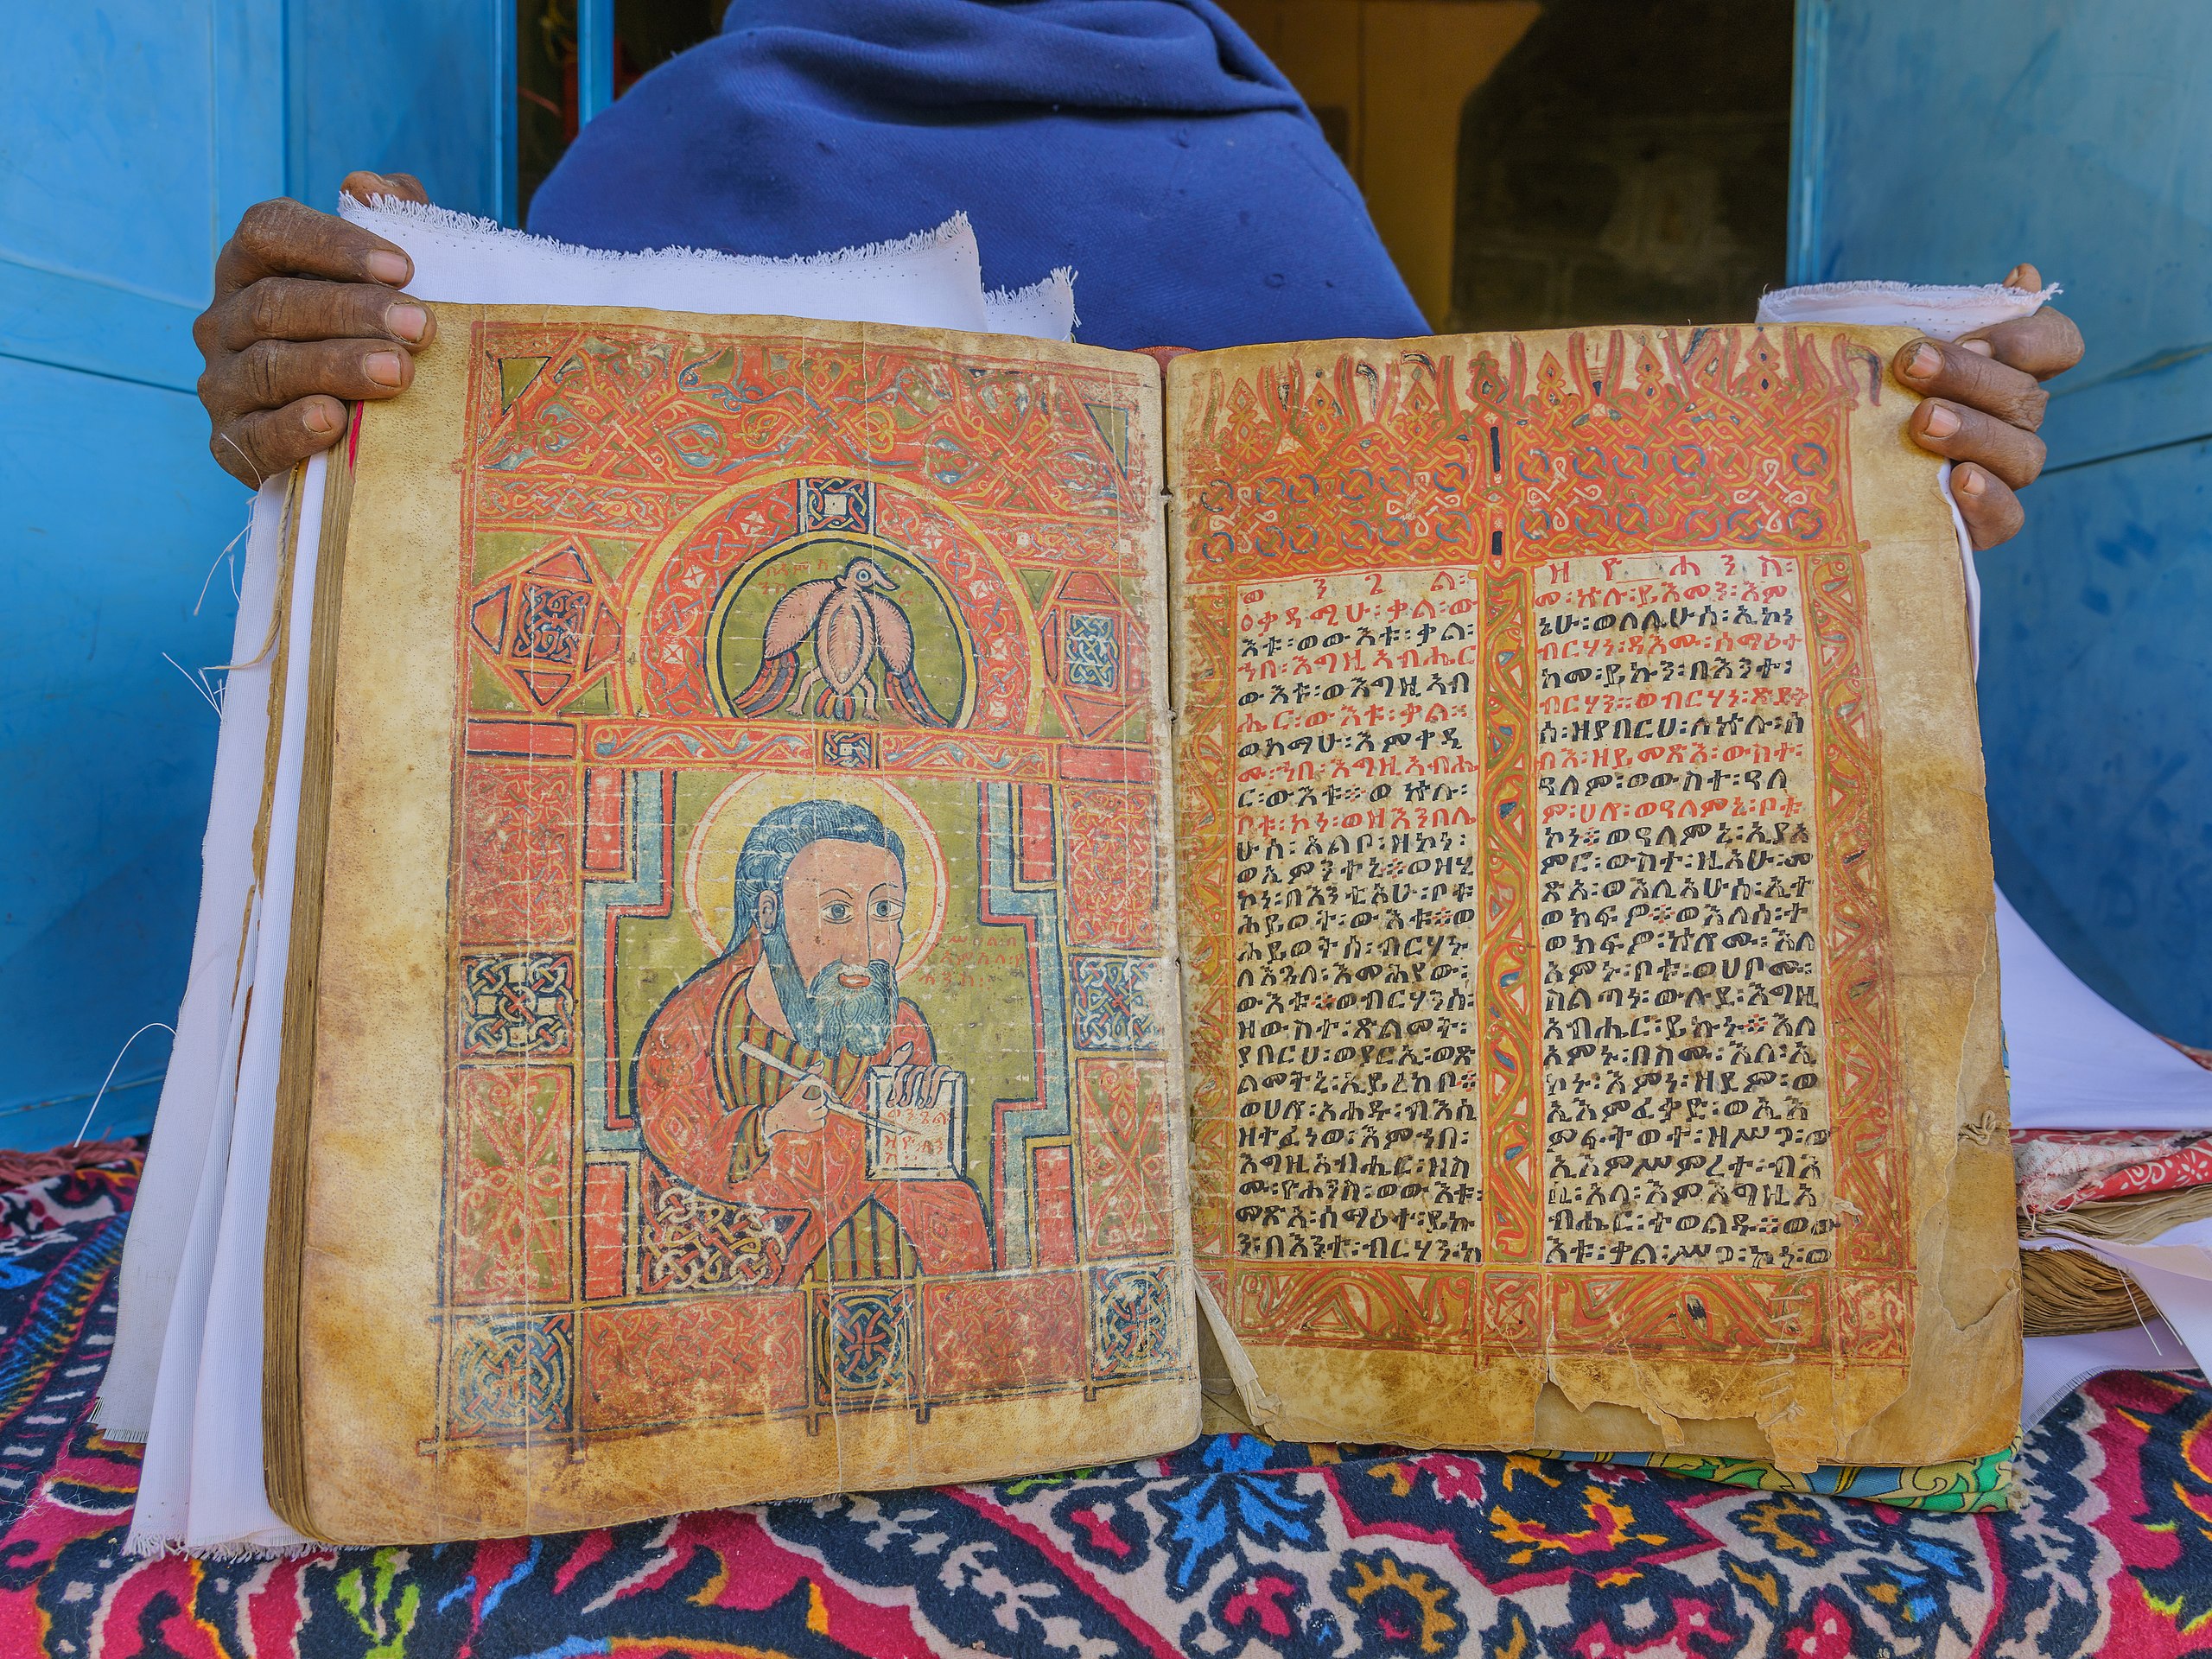 ወንጌል
ዘዮሐን
ስ
ወ ን ጌ ል፡
ዐቀዳሚሁ፡ቃል፡ው
እቱ፡ወውእቱ፡ቃል፡
ኀበ፡እግዚኣብሔር
ውእቱ፡ወእግዚኣብ
ሔር፡ውእቱ፡ቃል፡
ወከማሁ፡እምቀዲ
ሙ፡ኀበ፡እግዚኣብሔ
ር፡ውእቱ፡፡ወ ኵሉ፡
ቦቱ፡ኮነ፡ወዘእንበሌ
ሁሰ፡አልቦ፡ዘኮነ፡
ወኢምንተኒ፡፡ወዘሂ
ኮነ፡በእንቲአሁ፡ቦቱ
ሕይወት፡ውእቱ፡፡ወ
ሕይወትሰ፡ብርሃኑ
ለእጓለ፡እመሕያው፡
ውእቱ፡፡ወብርሃንሰ፡
ዘውስተ፡ጽልመት፡
ያበርህ፡ወያርኢ፡ወጽ
ልመትኒ፡ኢይረከቦ፡፡
ወሀሎ፡አሐዱ፡ብእሲ
ዘተፈነወ፡እምኀበ፡
እግዚአብሔር፡ዘስ
ሙ፡ዮሐንስ፡ወውእቱ፡
መጽአ፡ሰማዕተ፡ይኩ
ን፡በእንተ፡ብርሃን፡ከ
ዘ ዮ ሐ ን ስ፡
መ፡ኵሉ፡ይእመን፡እም
ኔሁ፡ወለሊሁሰ፡ኢኮነ
ብርሃነ፡ዳእሙ፡ሰማዕተ
ከመ፡ይኩን፡በእንተ፡
ብርሃን፡፡ወብርሃነ፡ጽድቅ
ሰ፡ዘያበርህ፡ለኵሉ፡ሰ
ብእ፡ዘይመጽእ፡ውስተ፡
ዓለም፡ወውስተ፡ዓለ
ም፡ሀሎ፡ወዓለምኒ፡ቦቱ
ኮነ፡፡ወዓለምኒ፡ኢያአ
ምሮ፡ውስተ፡ዚአሁ፡መ
ጽአ፡ወእሊአሁሰ፡ኢተ
ወክፍዎ፡፡ወእለሰ፡ተ
ወክፍዎ፡ኵሎሙ፡እለ
አምኑ፡ቦቱ፡ወሀቦሙ፡
ስልጣነ፡ውሉደ፡እግዚ
አብሔር፡ይኩኑ፡፡እለ
አምኑ፡በስሙ፡እለ፡ኢ
ኮኑ፡እምነ፡ዘደም፡ወ
ኢእምፈቃደ፡ወኢእ
ምፍትወተ፡ዘሥጋ፡ወ
ኢእምሥምረተ፡ብእ
ሲ፡አላ፡እምእግዚአ
ብሔር፡ተወልዱ፡፡ወው
እቱ፡ቃል፡ሥጋ፡ኮነ፡ወ